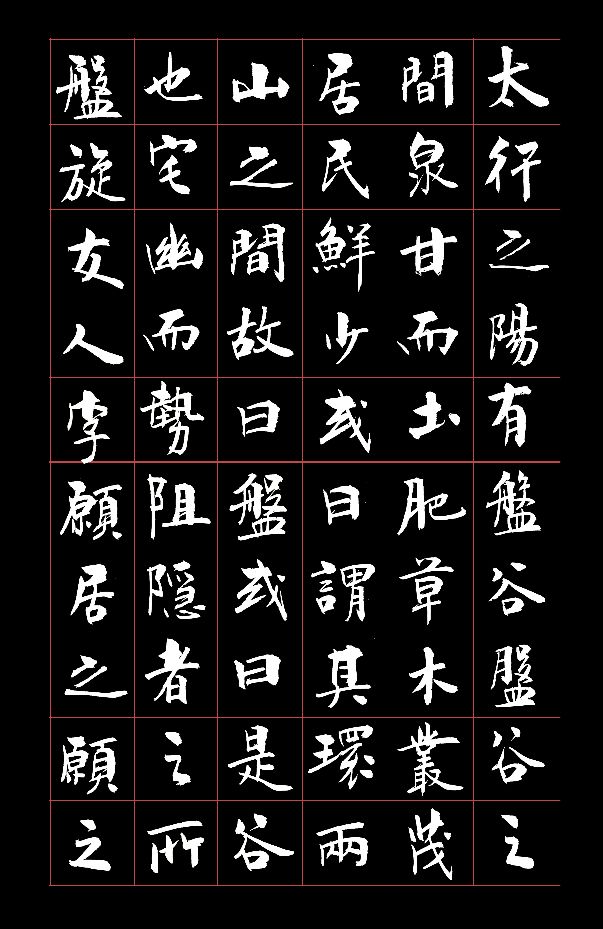 太行之陽有盤谷盤谷之
間泉甘而土肥草木叢茂
居民鮮少或曰謂其環兩
山之間故曰盤或曰是谷
也宅幽而勢阻隱者之所
盤旋友人李願居之願之